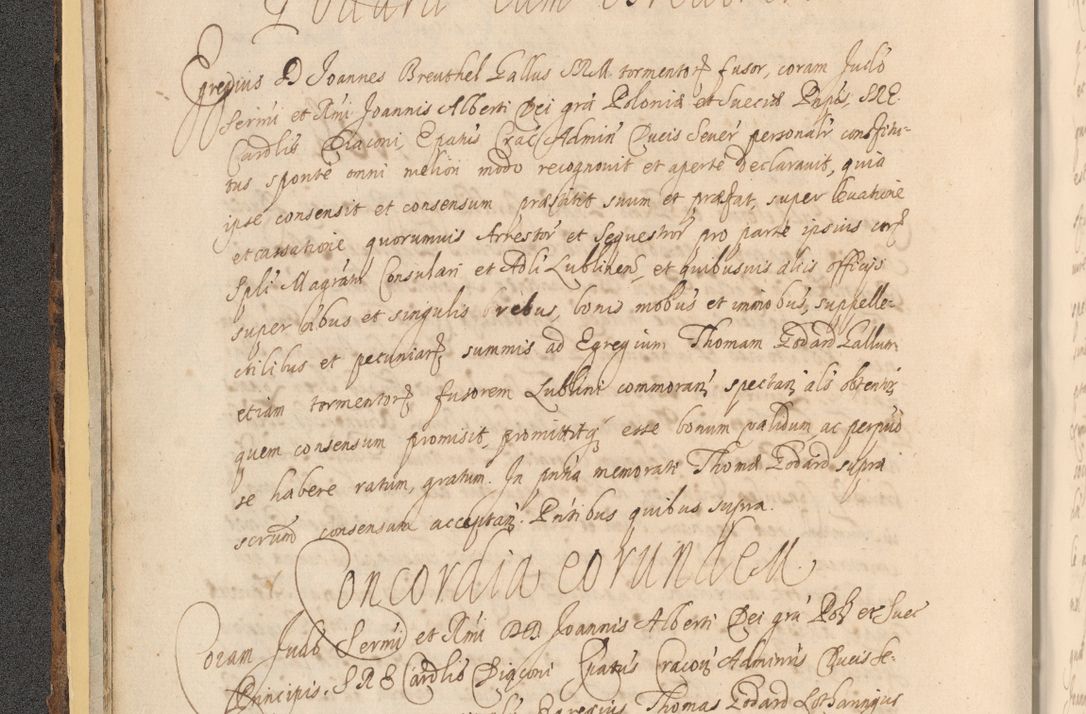 Egregius D Joannes Breuthel Gallus SRM tormentorꝝ fusor, coram Judo
Sermi et Rmi Joannis Alberti Dei gra Poloniæ et Sueciæ Pnpis, SRE
Cardlis Diaconi, Epatus Crac Admin Ducis Sever personalr constitu-
tus sponte omni meliori modo recognovit et aperte declaravit, quia
ipse consensit et consensum præstitit suum et præsat, super levatione
et cassatione quorumvis Arrestor et Sequestror pro parte ipsius corꝝ
Spli Magratu Consulari et Adli Lublinen, et quibusvis aliis officiis
super oibus et singulis rebus, bonis mobus et immobus, suppelle-
ctilibus et pecuniarꝝ summis ad Egregium Thomam Godard Gallum
etiam tormentorꝝ fusorem Lublini commoran spectan als obtentis
quem consensum promisit, promittitq esse bonum validum ac perpuo
se habere ratum, gratum. In pntia memorati Thomæ Godard supra
scrum consensum acceptan. Pntibus quibus supra.
Concordia eorundem.
Coram Judo Sermi et Rmi DD Joannis Alberti Dei gra Pol et Suec
Principis, SRE Cardlis Diaconi Epatus Cracon Adminris Ducis Se-
Egregius Thomas Godard Lotharingus